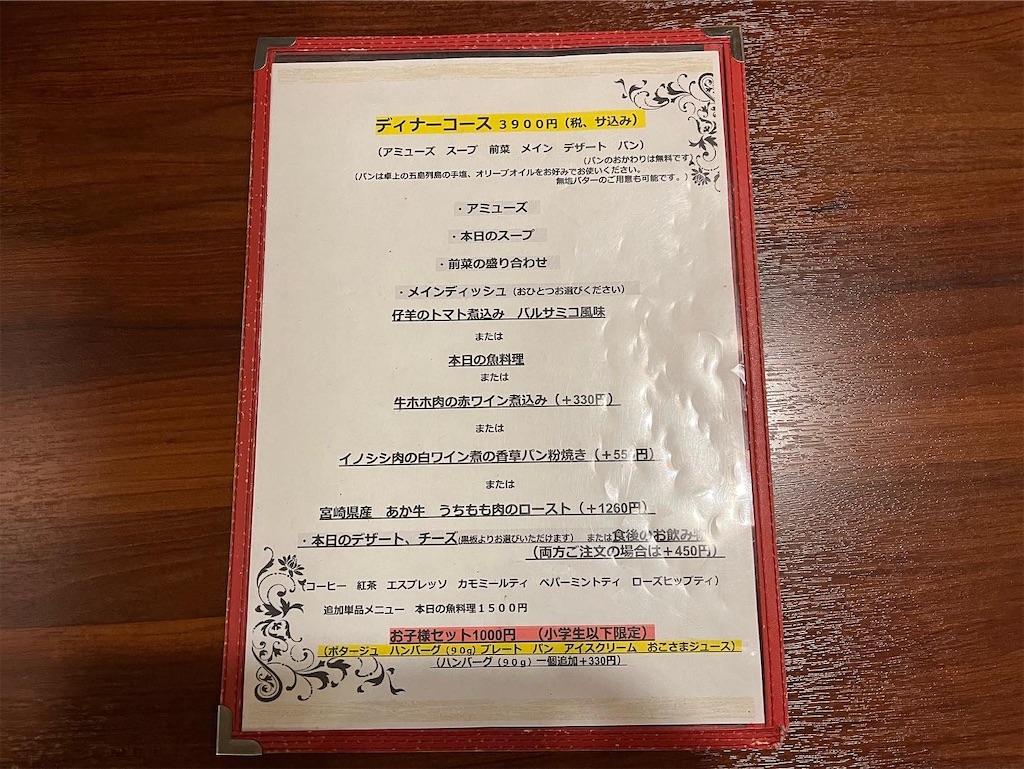 ディナーコース 3900円（税、サ込み）
（アミューズ　スープ　前菜　メイン　デザート　パン）
（パンのおかわりは無料です）
（パンは卓上の五島列島の手塩、オリーブオイルをお好みでお使いください。
無塩バターのご用意も可能です。）
・アミューズ
・本日のスープ
・前菜の盛り合わせ
・メインディッシュ（おひとつお選びください）
仔羊のトマト煮込み　バルサミコ風味
または
本日の魚料理
または
牛ホホ肉の赤ワイン煮込み（＋330円）
または
イノシシ肉の白ワイン煮の香草パン粉焼き（＋55 円）
または
宮崎県産　あか牛　うちもも肉のロースト（＋1260円）
・本日のデザート、チーズ(黒板よりお選びいただけます)　または食後のお飲み物
（両方ご注文の場合は＋450円）
（コーヒー　紅茶　エスプレッソ　カモミールティ　ペパーミントティ　ローズヒップティ）
追加単品メニュー　本日の魚料理１５００円
お子様セット1000円　（小学生以下限定）
（ポタージュ　ハンバーグ（９０g）プレート　パン　アイスクリーム　おこさまジュース）
（ハンバーグ（９０g）一個追加＋330円）